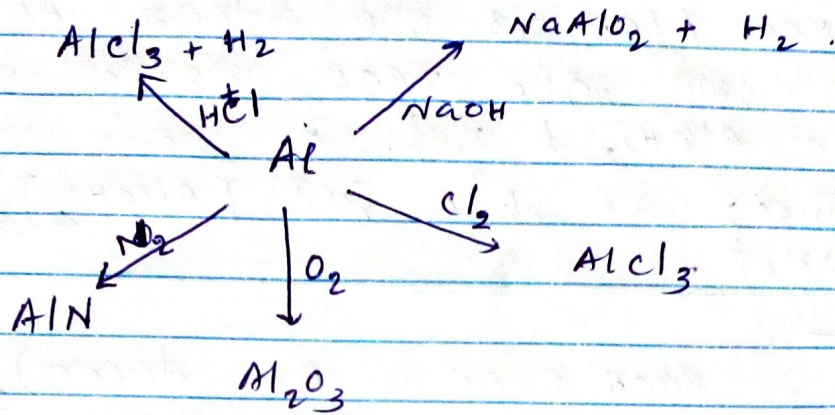 AlCl3 + H2
NaAlO2 + H2 .
HCl
NaOH
Al
Cl2
N2
O2
AlCl3
AlN
Al2O3